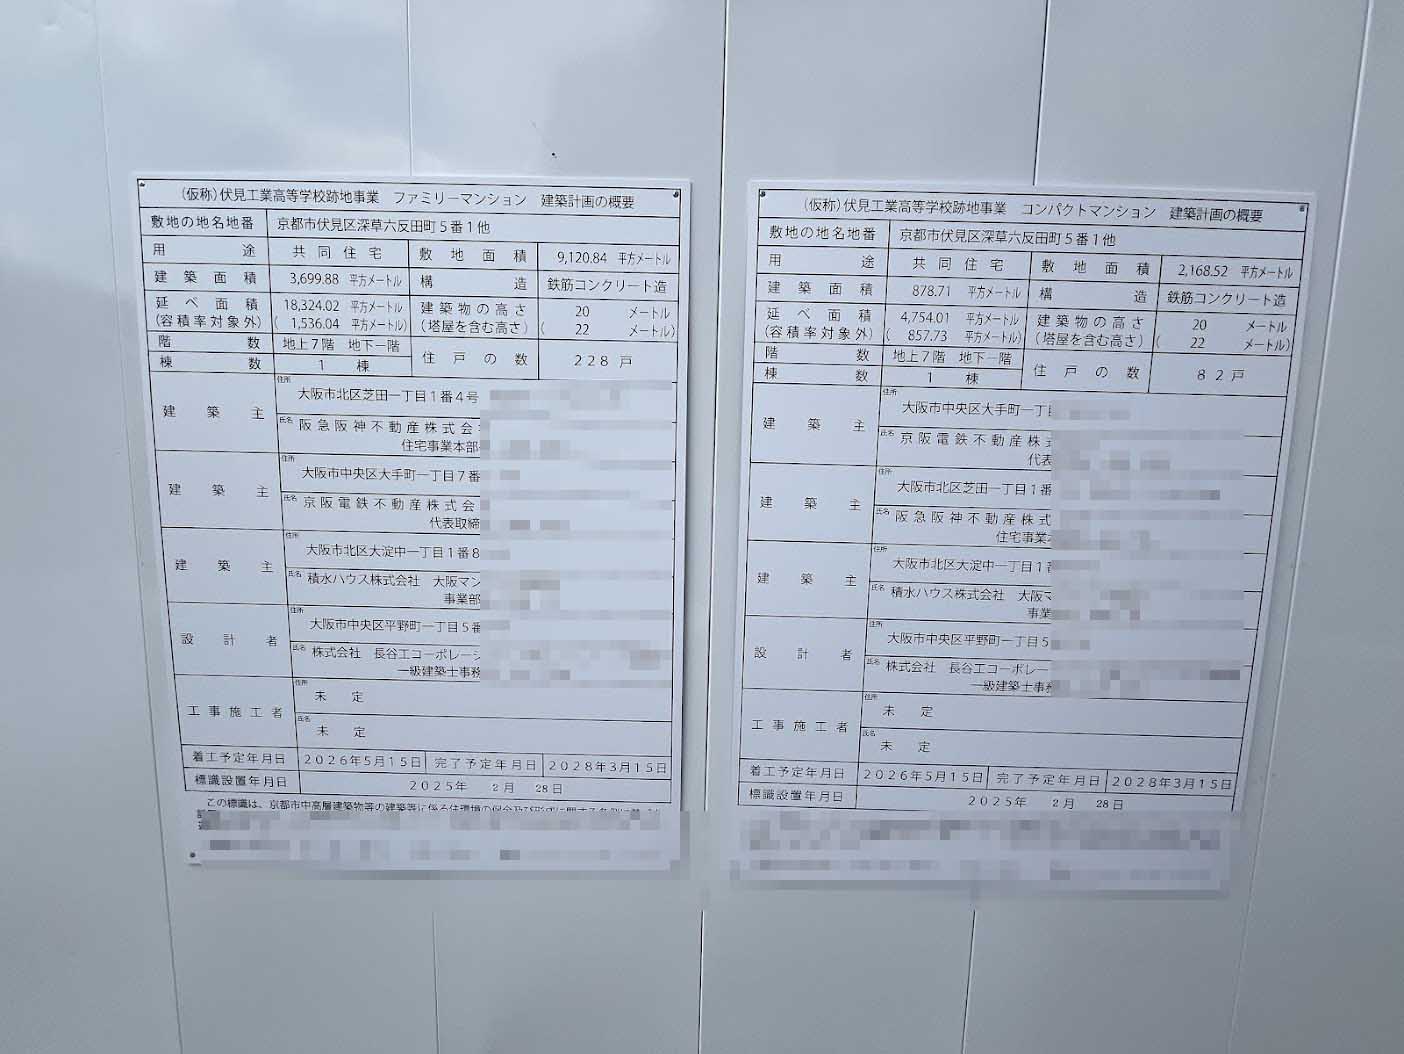 (仮称)伏見工業高等学校跡地事業 ファミリーマンション 建築計画の概要
敷地の地名地番 京都市伏見区深草六反田町5番1他
用途 共同住宅 敷地面積 9,120.84 平方メートル
建築面積 3,699.88 平方メートル 構造 鉄筋コンクリート造
延べ面積 18,324.02 平方メートル 建築物の高さ 20 メートル
(容積率対象外) ( 1,536.04 平方メートル) (塔屋を含む高さ) ( 22 メートル)
階数 地上7階 地下一階 住戸の数 228戸
棟数 1 棟
建築主 住所 大阪市北区芝田一丁目1番4号
氏名 阪急阪神不動産株式会
住宅事業本部
建築主 住所 大阪市中央区大手町一丁目7番
氏名 京阪電鉄不動産株式会
代表取締
建築主 住所 大阪市北区大淀中一丁目1番8
氏名 積水ハウス株式会社 大阪マン
事業部
設計者 住所 大阪市中央区平野町一丁目5番
氏名 株式会社 長谷工コーポレーシ
一級建築士事務
工事施工者 住所 未定
氏名 未定
着工予定年月日 2026年5月15日 完了予定年月日 2028年3月15日
標識設置年月日 2025年 2月 28日
この標識は、京都市中高層建築物等の建築等に係る住環境の保全及び形成に関する条例
(仮称)伏見工業高等学校跡地事業 コンパクトマンション 建築計画の概要
敷地の地名地番 京都市伏見区深草六反田町5番1他
用途 共同住宅 敷地面積 2,168.52 平方メートル
建築面積 878.71 平方メートル 構造 鉄筋コンクリート造
延べ面積 4,754.01 平方メートル 建築物の高さ 20 メートル
(容積率対象外) ( 857.73 平方メートル) (塔屋を含む高さ) ( 22 メートル)
階数 地上7階 地下一階 住戸の数 82戸
棟数 1 棟
建築主 住所 大阪市中央区大手町一丁目
氏名 京阪電鉄不動産株式
代表
建築主 住所 大阪市北区芝田一丁目1番
氏名 阪急阪神不動産株式
住宅事業
建築主 住所 大阪市北区大淀中一丁目1
氏名 積水ハウス株式会社 大阪マ
事業
設計者 住所 大阪市中央区平野町一丁目5
氏名 株式会社 長谷工コーポレー
一級建築士事務
工事施工者 住所 未定
氏名 未定
着工予定年月日 2026年5月15日 完了予定年月日 2028年3月15日
標識設置年月日 2025年 2月 28日